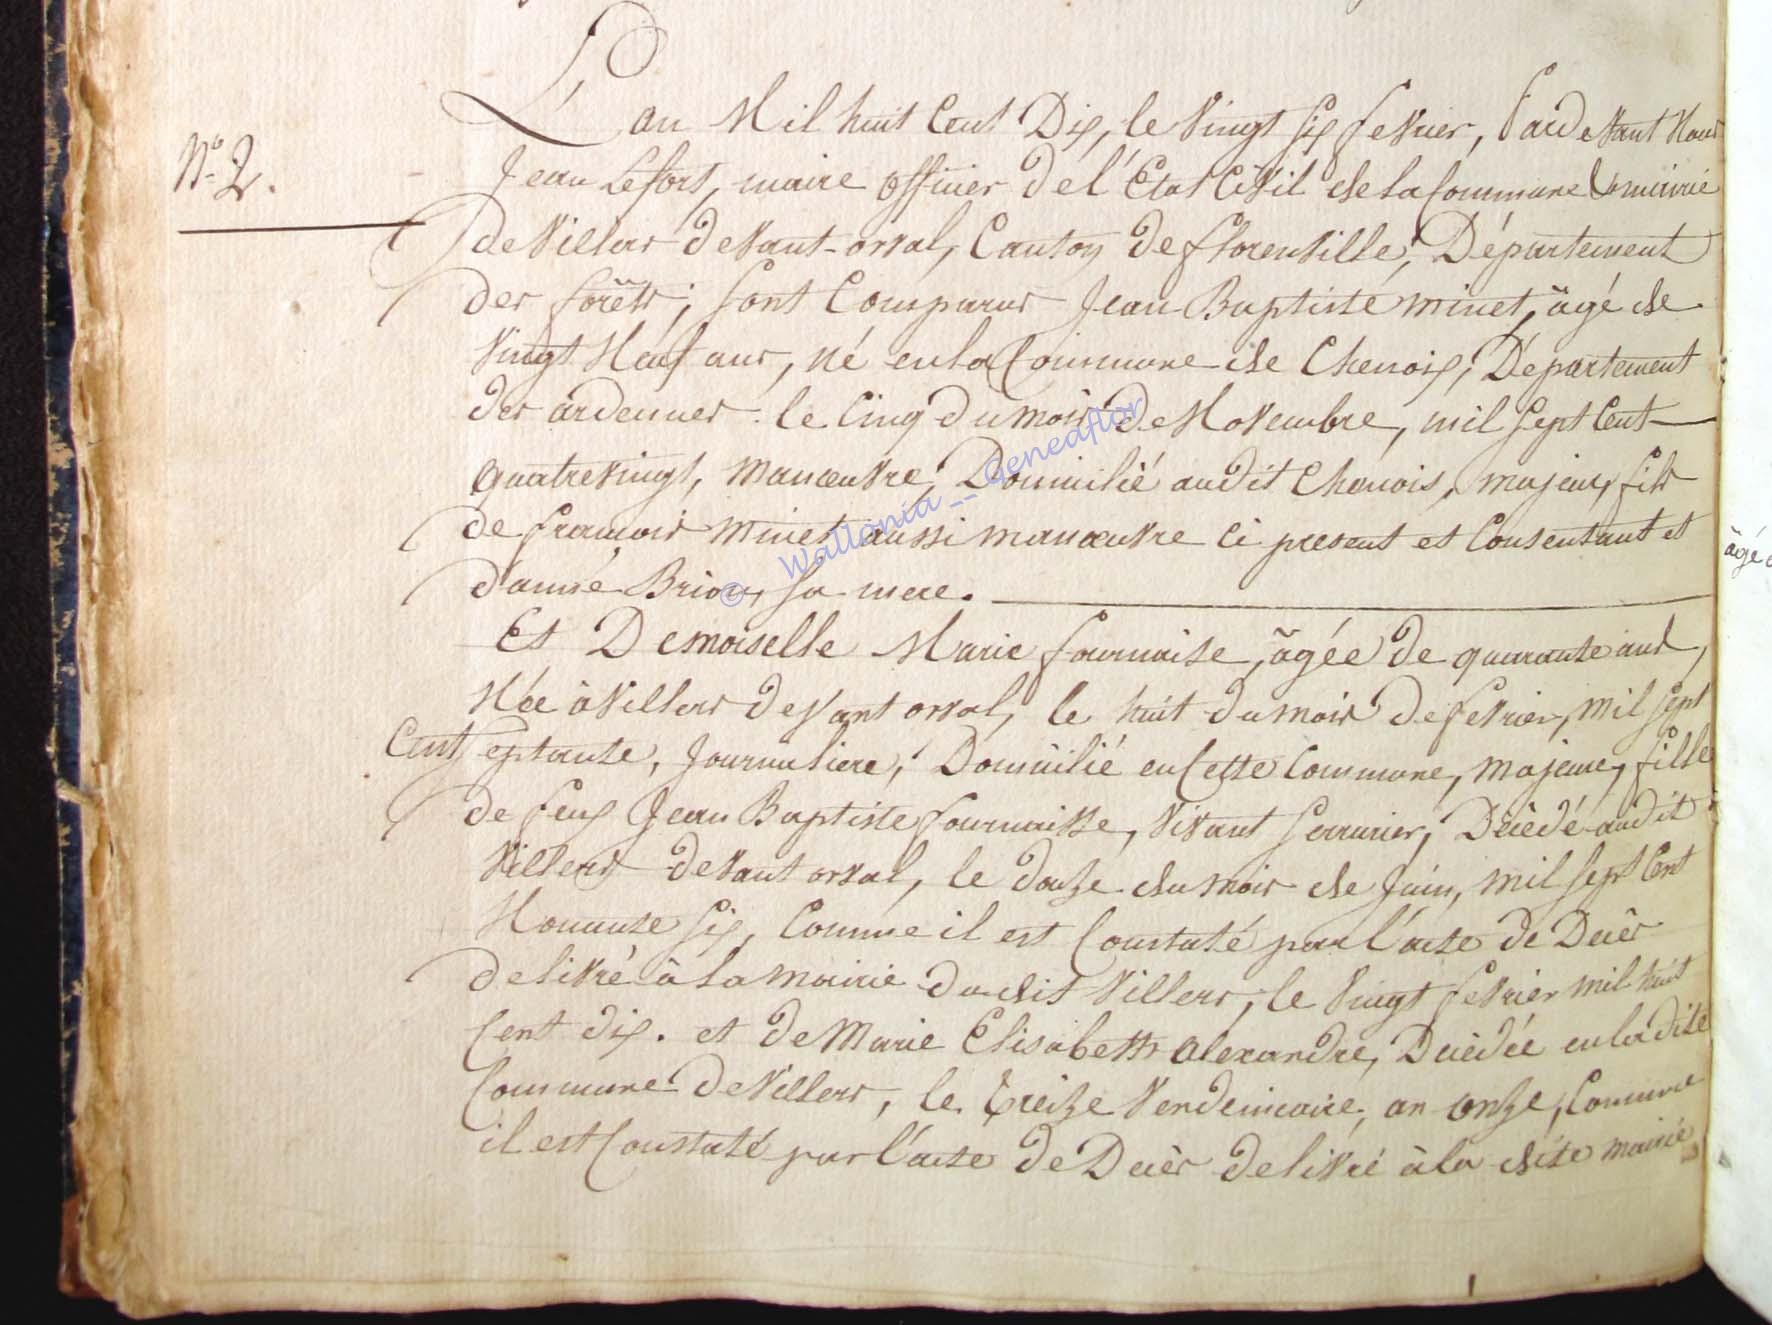 L'an Mil huit Cent Dix, le Vingt six fevrier, Pardevant Nous
N.º 2.
Jean Lefort, maire officier de l'Etat Civil de la Commune & mairie
de Villers devant-orval, Canton de florenville, Département
des forêts; sont Comparus Jean Baptiste minet, âgé de
Vingt Neuf ans, né en la Commune de Chenoix, Département
des ardennes. le Cinq du mois de Novembre, mil sept Cent
quatrevingt, manœuvre, Domicilié audit Chenois, majeur, fils
de francois minet aussi manœuvre ci present et Consentant et
d'anne Brion, sa mere.
Et Demoiselle Marie fournaise, âgée de quarante ans,
Née à Villers devant orval, le huit du mois de fevrier, mil sept
Cent septante, Journaliere, Domicilié en Cette Commune, majeure, fille
de feux Jean Baptiste fournaise, vivant serrurier, Décédé audit
Villers devant orval, le douze du mois de Juin, mil sept Cent
Nonante six, Comme il est Constaté par l'acte de Decès
delivré à la mairie dudit Villers, le Vingt fevrier mil huit
Cent dix. et de Marie Elisabeth alexandre, Decédée en la dite
Commune de Villers, le treize Vendemiaire, an onze, Comme
il est Constaté par l'acte de Decès delivré à la dite mairie
âgé
© Wallonia__Geneaflor